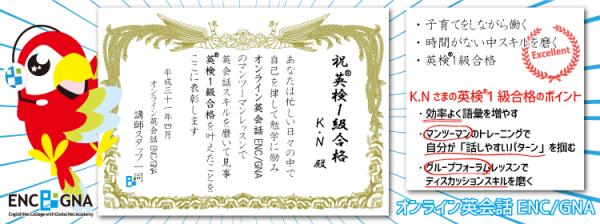 祝 英検®1級合格
K.N 殿
あなたは忙しい日々の中で
自己を律して勉学に励み
オンライン英会話ENC/GNA
のマンツーマンレッスンで
英会話スキルを磨いて見事
英検®1級合格を叶えたことを
ここに表彰します
平成三十一年四月
オンライン英会話ENC/GNA
講師スタッフ一同
・子育てをしながら働く
・時間がない中スキルを磨く
・英検®1級合格
Excellent
K.Nさまの英検®1級合格のポイント
・効率よく語量を増やす
・マンツーマンのトレーニングで
自分が「話しやすいパターン」を掴む
・グループフォーラムレッスンで
ディスカッションスキルを磨く
ENC GNA
English Net College with Global Net Academy
オンライン英会話 ENC/GNA